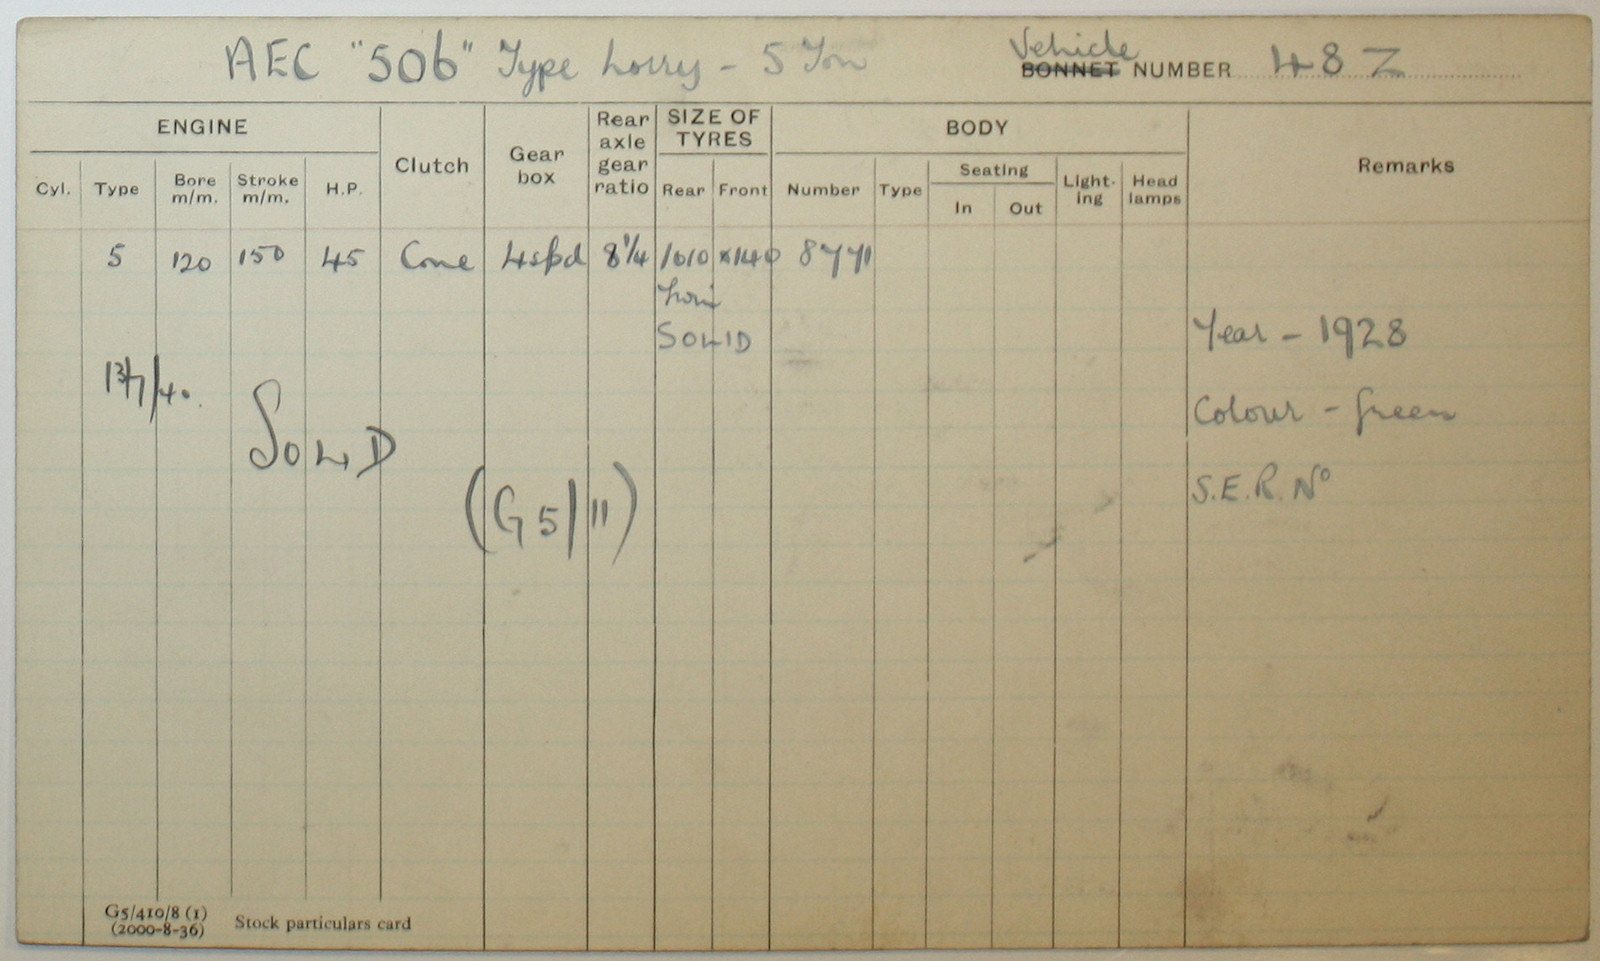 AEC "506" Type Lorry - 5 Ton
Vehicle
BONNET NUMBER 48 Z
ENGINE
Clutch
Gear box
Rear axle gear ratio
SIZE OF TYRES
BODY
Remarks
Cyl. Type Bore m/m. Stroke m/m. H.P.
Rear Front Number Type Seating In Out Light-ing Head lamps
5 120 150 45 Cone 4spd 8¼ 1010 x140 8771
Twin
SOLID
Year - 1928
13/7/40.
Colour - Green
SOLD
S.E.R. No
(G5/11)
G5/410/8 (1)
(2000-8-36)
Stock particulars card